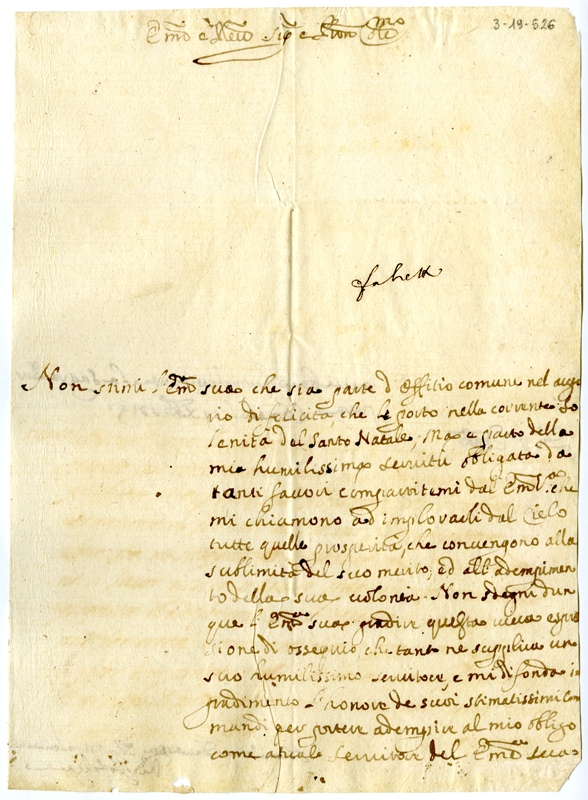 3-19-526
Em̃o e Reũo Sig.r e Pron Col.mo
Non stimi l'Em̃a sua che sia parte d'offitio comune nel augu
rio di felicità, che le porto nella corrente So
lenità del Santo Natale; Ma è parto della
mia humilissima servitù obligata da
tanti favori compartitemi dal Em.za V.a che
mi chiamono ad implorarli dal Cielo
tutte quelle prosperità, che convengono alla
sublimità del suo merito, ed all'adempimen
to della sua volontà. Non sdegni dun
que l'Em̃a sua gradire questa viva espres
sione di osseguio, che tant ne supplica un
suo humilissimo servitore, e mi difonda in
gradimento l'honore de suoi stimatissimi Com
mandi per potere adempire al mio obligo
come atuale servitore del Em̃a sua